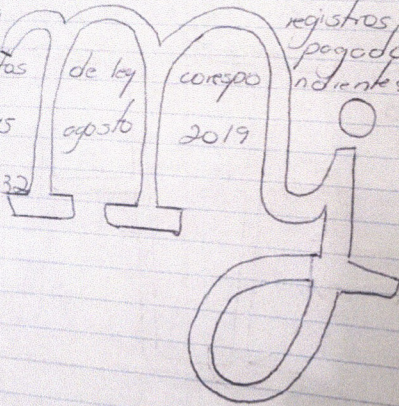 registros
pagado
de ley corespo ndientes
agosto 2019
32